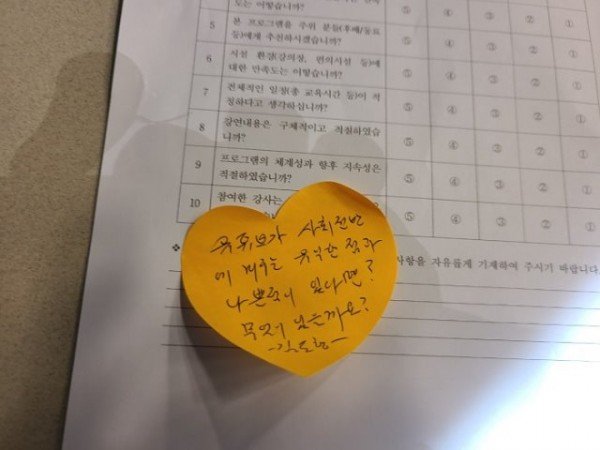 도는 어떻습니까?
⑤ ④ ③ ② ①
5 본 프로그램을 주위 분들(후배/동료 등)에게 추천하시겠습니까?
⑤ ④ ③ ② ①
6 시설 환경(강의장, 편의시설 등)에 대한 만족도는 어떻습니까?
⑤ ④ ③ ② ①
7 전체적인 일정(총 교육시간 등)이 적정하다고 생각하십니까?
⑤ ④ ③ ② ①
8 강연내용은 구체적이고 적절하였습니까?
⑤ ④ ③ ② ①
9 프로그램의 체계성과 향후 지속성은 적절하였습니까?
⑤ ④ ③ ② ①
10 참여한 강사는
⑤ ④ ③ ② ①
사항을 자유롭게 기재하여 주시기 바랍니다.
유튜브가 사회전반
에 미치는 유익한 점과
나쁜점이 있다면?
무엇이 있을까요?